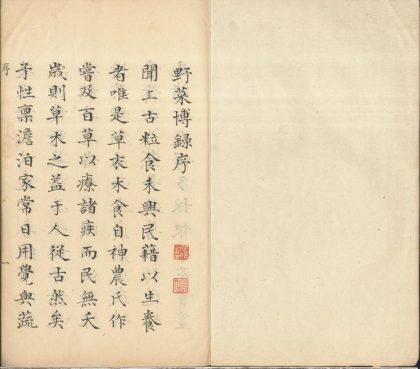 野菜博錄序
聞上古粒食未興民籍以生養
者唯是草衣木食自神農氏作
嘗及百草以療諸疾而民無夭
歲則草木之益于人從古然矣
予性稟澹泊家常日用覺與蔬
序
一